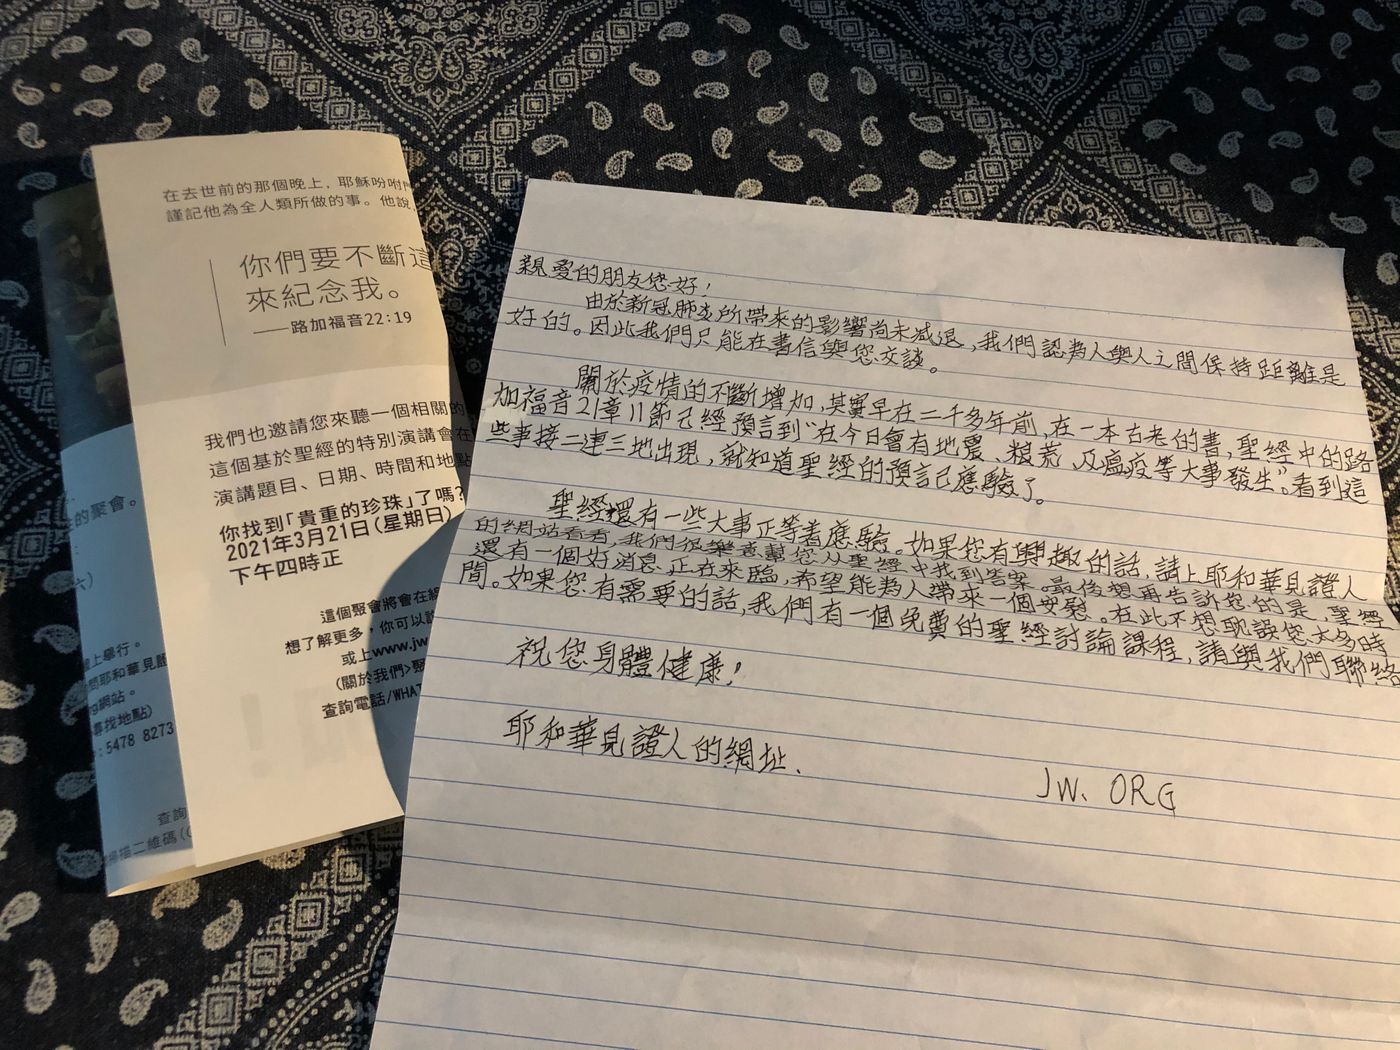 在去世前的那個晚上，耶穌吩咐門
謹記他為全人類所做的事。他說，
你們要不斷這
來紀念我。
——路加福音22:19
我們也邀請您來聽一個相關的
這個基於聖經的特別演講會在
演講題目、日期、時間和地點
你找到「貴重的珍珠」了嗎?
2021年3月21日(星期日)
下午四時正
這個聚會將會在線
想了解更多，你可以說
或上www.jw
(關於我們>聚
查詢電話/WHAT
的聚會。
六)
線上舉行。
問耶和華見證
網站。
尋找地點)
:5478 8273
查詢
掃描二維碼(
親愛的朋友您好!
由於新冠肺炎所帶來的影響尚未減退，我們認為人與人之間保持距離是
好的。因此我們只能在書信與您交談。
關於疫情的不斷增加，其實早在二千多年前，在一本古老的書，聖經中的路
加福音21章11節已經預言到“在今日會有地震、糧荒、及瘟疫等大事發生”。看到這
些事接二連三地出現，就知道聖經的預言已應驗了。
聖經還有一些大事正等着應驗。如果您有興趣的話，請上耶和華見證人
的網站看看，我們很樂意幫您从聖經中找到答案。最後想再告訴您的是，聖經
還有一個好消息正在來臨，希望能為人帶來一個安慰。在此不想耽誤您太多時
間。如果您有需要的話，我們有一個免費的聖經討論課程，請與我們聯絡
祝您身體健康!
耶和華見證人的網址.
JW. ORG